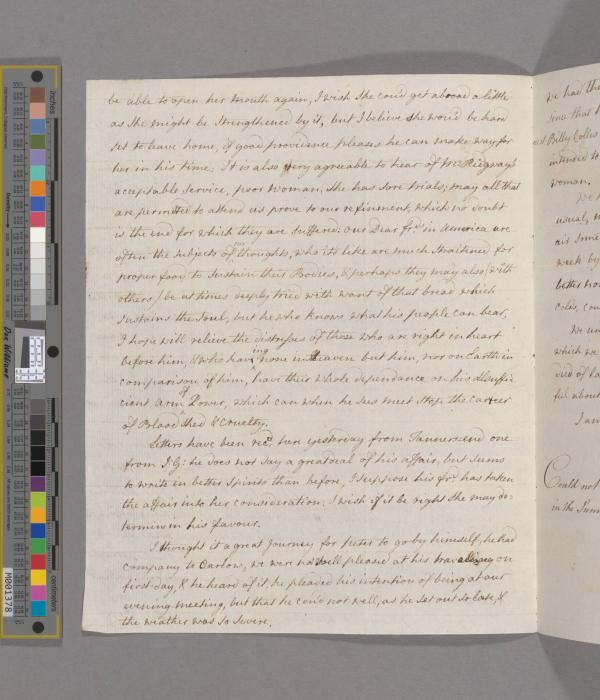 be able to open her mouth again, I wish she cou'd get abroad a little
as she might be strengthened by it, but I believe she wou'd be hard
set to leave home, if good providence pleases he can make way for
her in his time. It is also very agreeable to hear of Ridgways
acceptable service, poor woman, she has sore trials; may all that
are permitted to attend us prove to our refinement, which no doubt
is the end for which they are suffered. our Dear frds in America are
often the subjects of my thoughts, who its like are much straitened for
proper food to sustain their Bodies, & perhaps they may also (with
others) be at times deeply tried with want of that bread which
sustains the soul, but he who knows what his people can bear,
I hope will relieve the distresses of those who are right in heart
before him, & who having none in Heaven but him, nor on Earth in
comparison of him, have their whole dependance on his allsuffi-
cient arm of Power, which can when he sees meet stop the career
of Blood shed & Cruelty.
Letters have been recd. here yesterday from Tanners-end one
from J:G: he does not say a great deal of his affair, but seems
to write in better spirits than before, I suppose his frd has taken
the affair into her consideration; I wish if it be right she may de-
termine in his favour.
I thought it a great Journey for Peter to go by himself, he had
company to Carlow, we were not well pleased at his travelling on
first-day, & he heard of it, he pleaded his intention of being at our
evening meeting, but that he cou'd not well, as he set out so late, &
the weather was so severe.
we had the
since that
Billy
intended to
woman.
usual,
air
week by
better
cold,
We
which we
died of
ful about
I am
Could not
in the
inches
centimeters
Don Williams
M001378